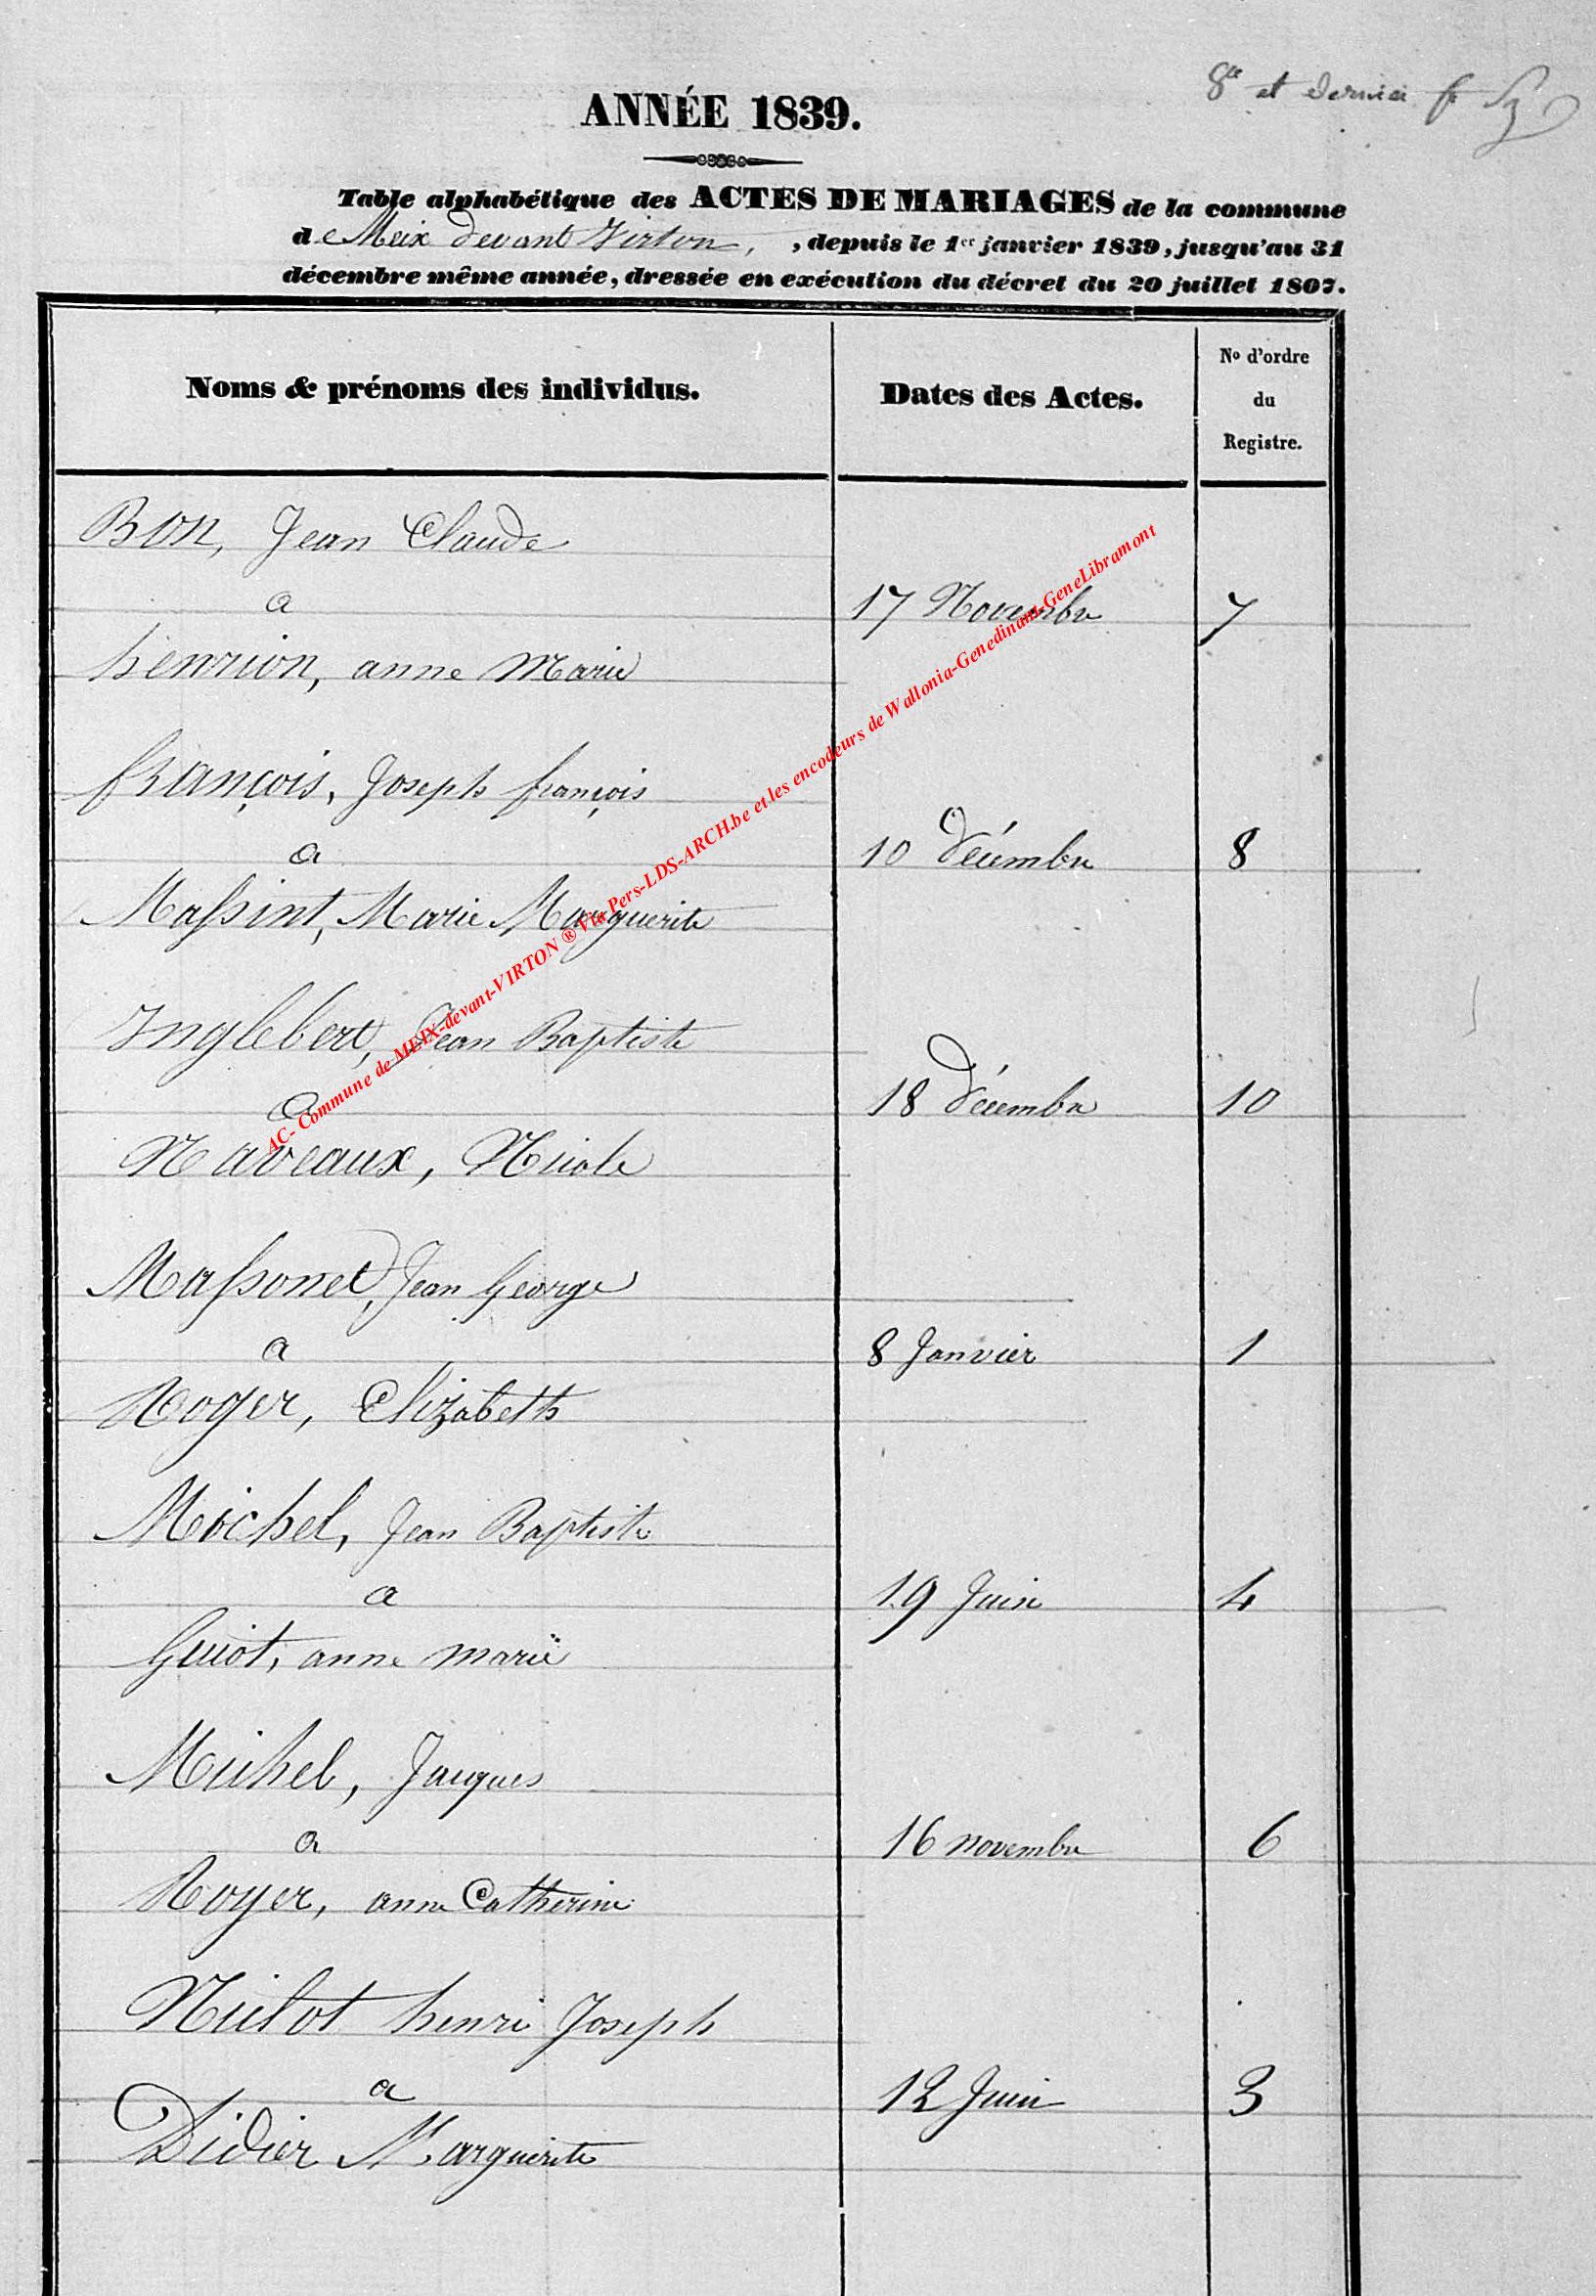 8e et dernier f
ANNÉE 1839.
Table alphabétique des ACTES DE MARIAGES de la commune
de Meix devant Virton, , depuis le 1er janvier 1839, jusqu'au 31
décembre même année, dressée en exécution du décret du 20 juillet 1807.
Noms & prénoms des individus.
Dates des Actes.
No d'ordre
du
Registre.
Bon, Jean Claude
a
17 Novembre 7
henrion, anne Marie
françois, Joseph françois
a
10 Décembre 8
Massint, Marie Marguerite
Inglebert, Jean Baptiste
a
18 Décembre 10
Naveaux, Nicole
Massonet, Jean George
a
8 Janvier 1
Roger, Elizabeth
Michel, Jean Baptiste
a
19 Juin 4
Guiot, anne marie
Michel, Jacques
a
16 novembre 6
Royer, anne Catherine
henri Joseph
a
12 Juin 3
Didier Marguerite
AC- Commune de MEIX-devant-VIRTON ® Via Pers-LDS-ARCH.be et les encodeurs de Wallonia-Genedinant-GeneLibramont